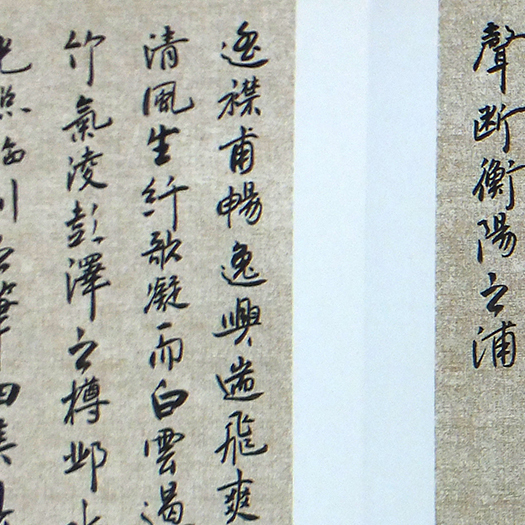 聲断衡陽之浦
遙襟甫暢逸興遄飛爽
清風生纤歌凝而白雲遏
竹氣淩彭澤之樽邺水
光照臨川之筆四美